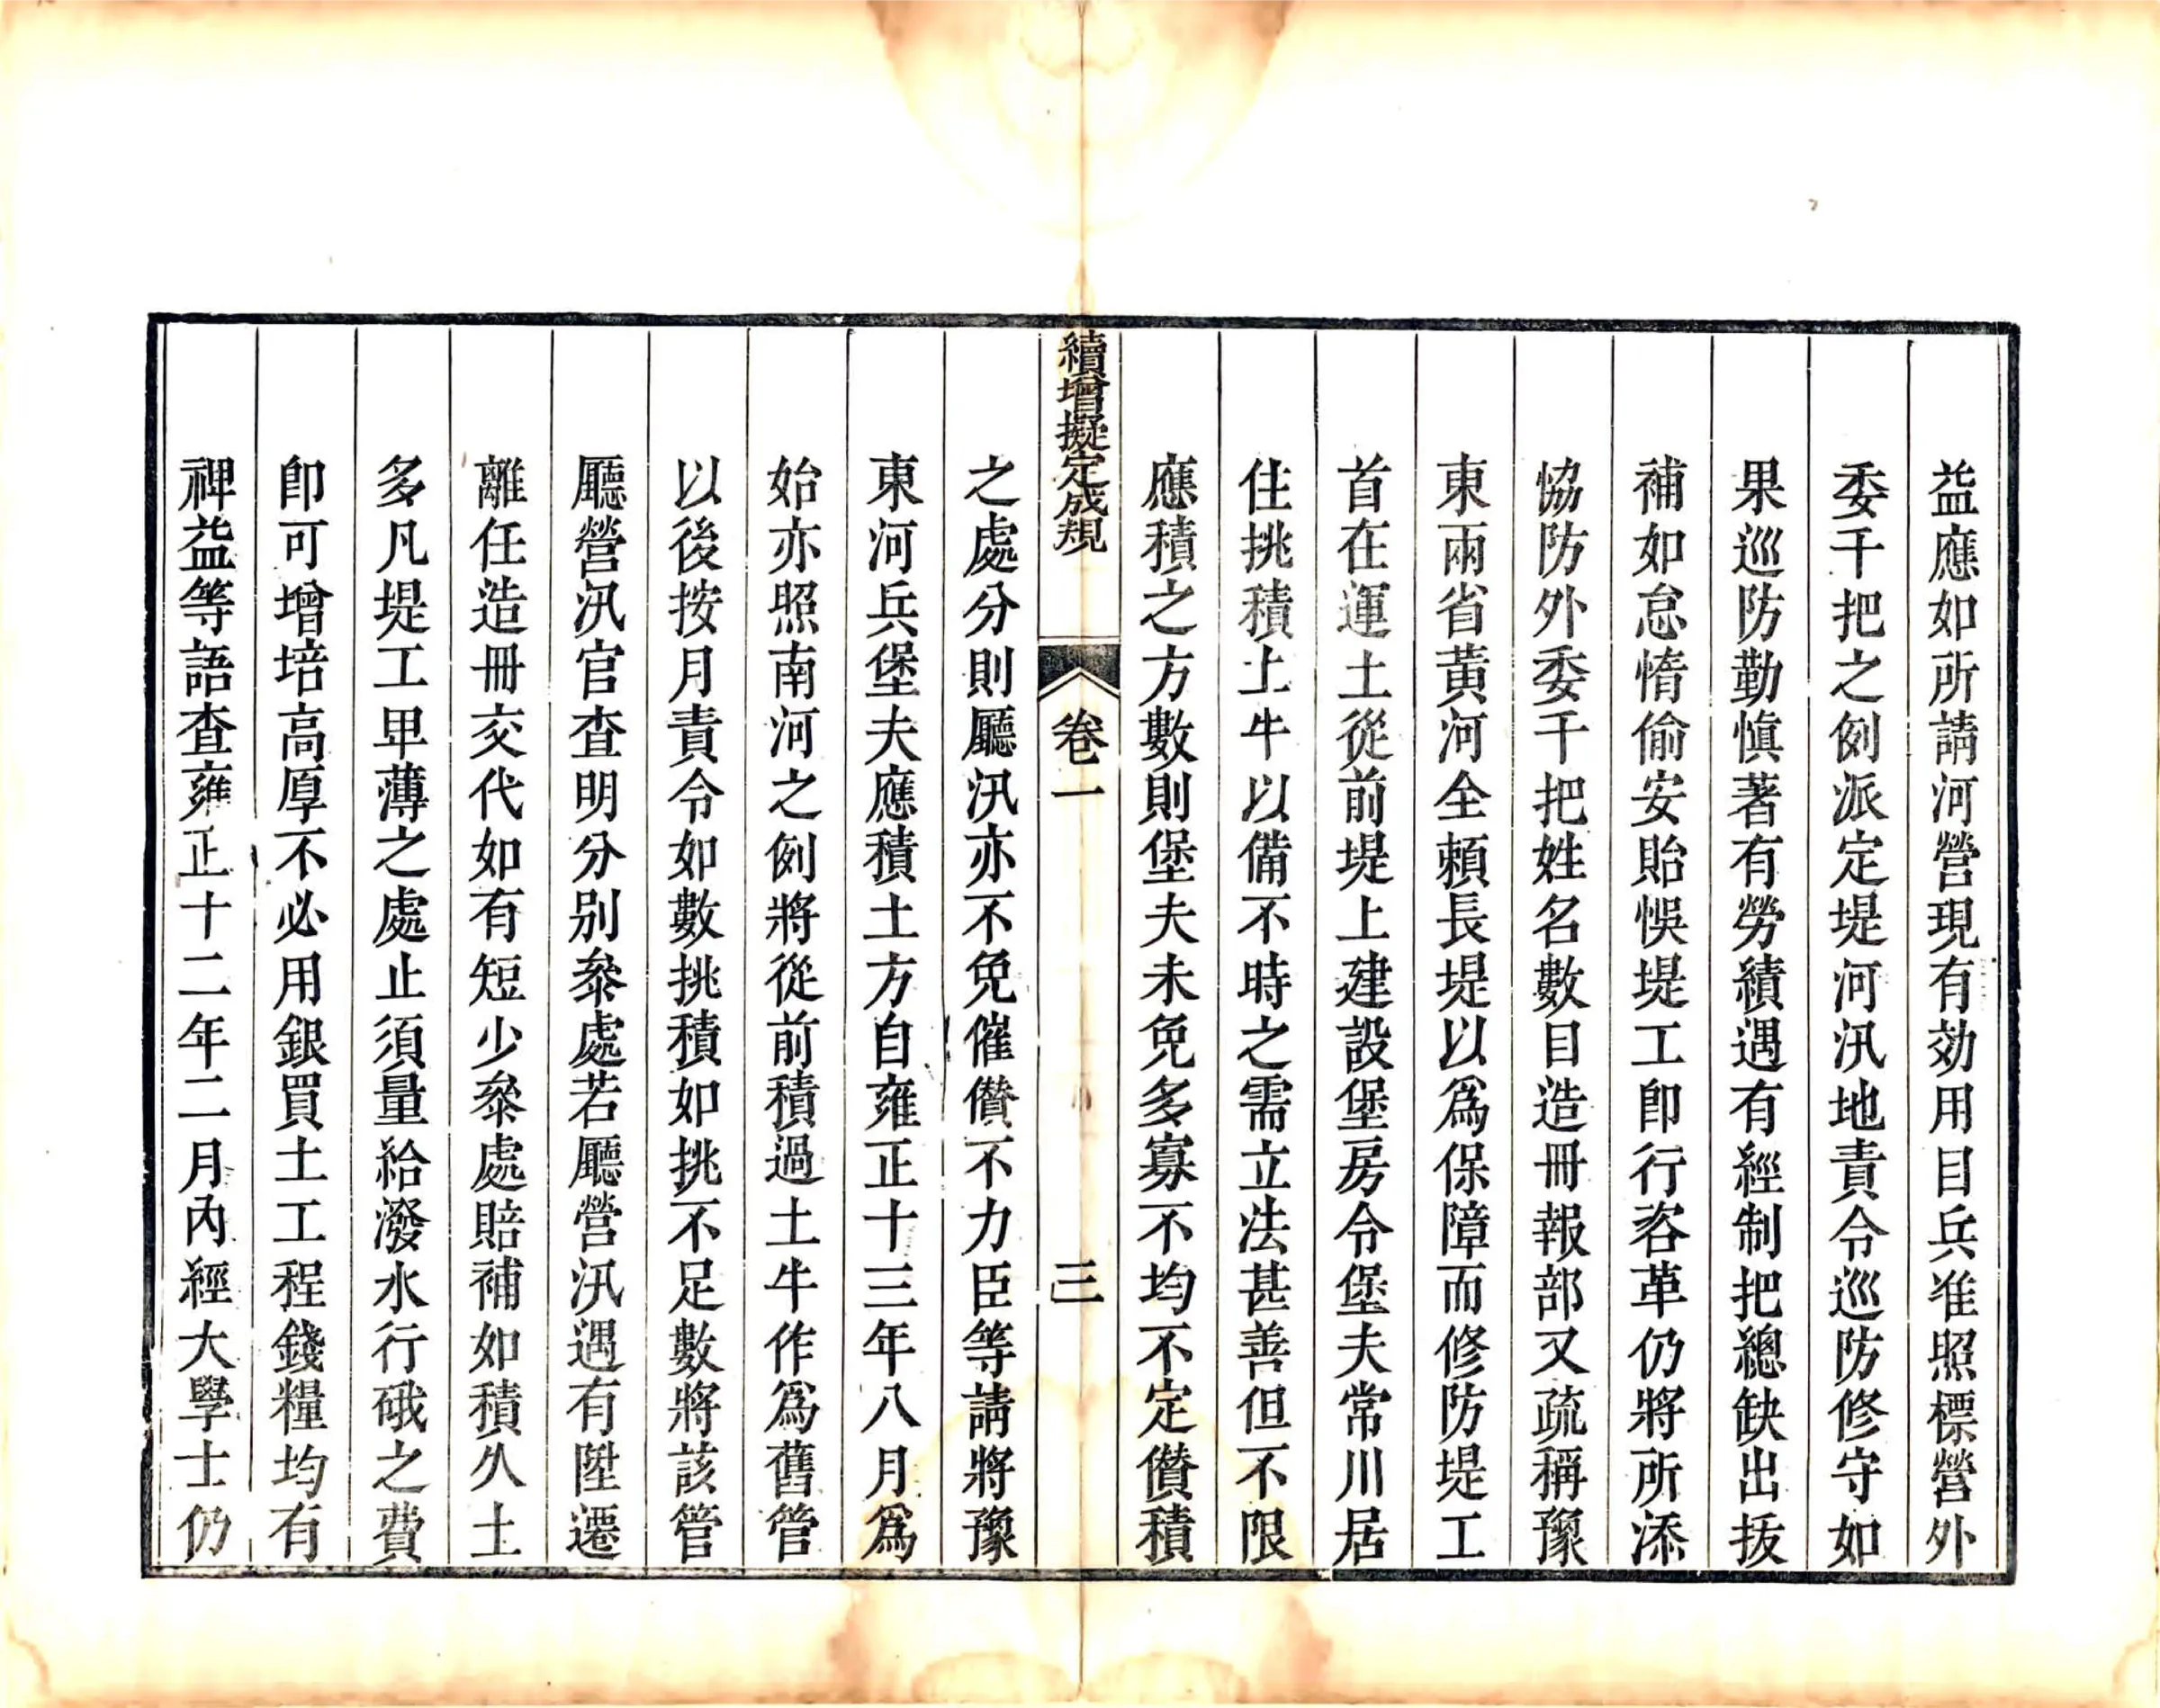 益應如所請河營現有効用目兵准照標營外
委千把之例派定堤河汛地責令巡防修守如
果巡防勤慎著有勞績遇有經制把總缺出拔
補如怠惰偷安貽悞堤工卽行咨革仍將所添
協防外委千把姓名數目造冊報部又疏稱豫
東兩省黃河全賴長堤以爲保障而修防堤工
首在運土從前堤上建設堡房令堡夫常川居
住挑積土牛以備不時之需立法甚善但不限
應積之方數則堡夫未免多寡不均不定儹積
續增擬定成規
卷一
三
之處分則廳汛亦不免催儹不力臣等請將豫
東河兵堡夫應積土方自雍正十三年八月爲
始亦照南河之例將從前積過土牛作爲舊管
以後按月責令如數挑積如挑不足數將該管
廳營汛官查明分別叅處若廳營汛遇有陞遷
離任造冊交代如有短少叅處賠補如積久土
多凡堤工卑薄之處止須量給潑水行硪之費
卽可增培高厚不必用銀買土工程錢糧均有
裨益等語查雍正十二年二月內經大學士仍